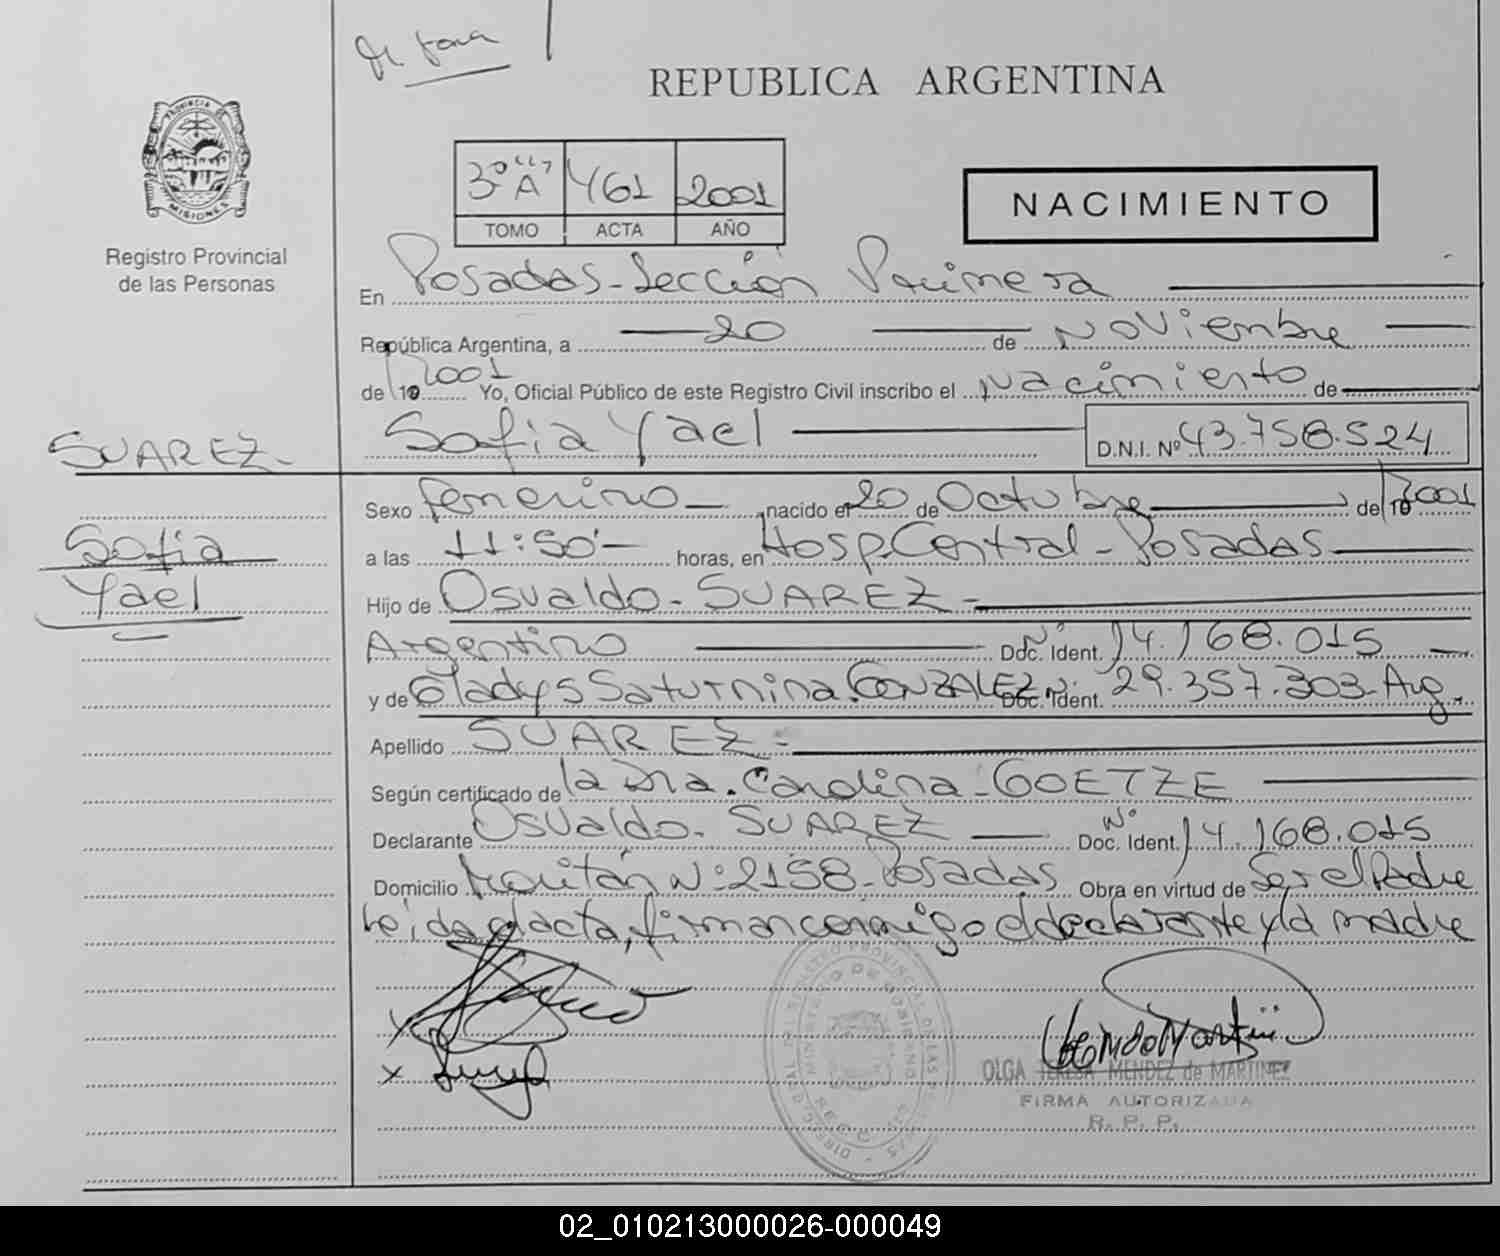 REPUBLICA ARGENTINA
PROVINCIA DE
MISIONES
Registro Provincial
de las Personas
3º "A" 461 2001
TOMO ACTA AÑO
NACIMIENTO
En Posadas - Sección Primera
República Argentina, a 20 de Noviembre
de 19 2001 Yo, Oficial Público de este Registro Civil inscribo el Nacimiento de
SUAREZ - Sofia Yael D.N.I. Nº 43.758.524
Sexo femenino - nacido el 20 de Octubre de 19 2001
Sofia
Yael
a las 11:50' - horas, en Hosp. Central - Posadas
Hijo de Osvaldo - SUAREZ -
Argentino Doc. Ident. Nº 14.168.015
y de Gladys Saturnina GONZALEZ Doc. Ident. 29.357.303 - Arg.
Apellido SUAREZ -
Según certificado de la Dra. Carolina - GOETZE
Declarante Osvaldo - SUAREZ Doc. Ident. Nº 14.168.015
Domicilio Nº 2158 - Posadas Obra en virtud de Ser el Padre
Leída el acta, firman conmigo el declarante y la madre
OLGA TERESA MENDEZ de MARTINEZ
FIRMA AUTORIZADA
R. P. P.
02_010213000026-000049